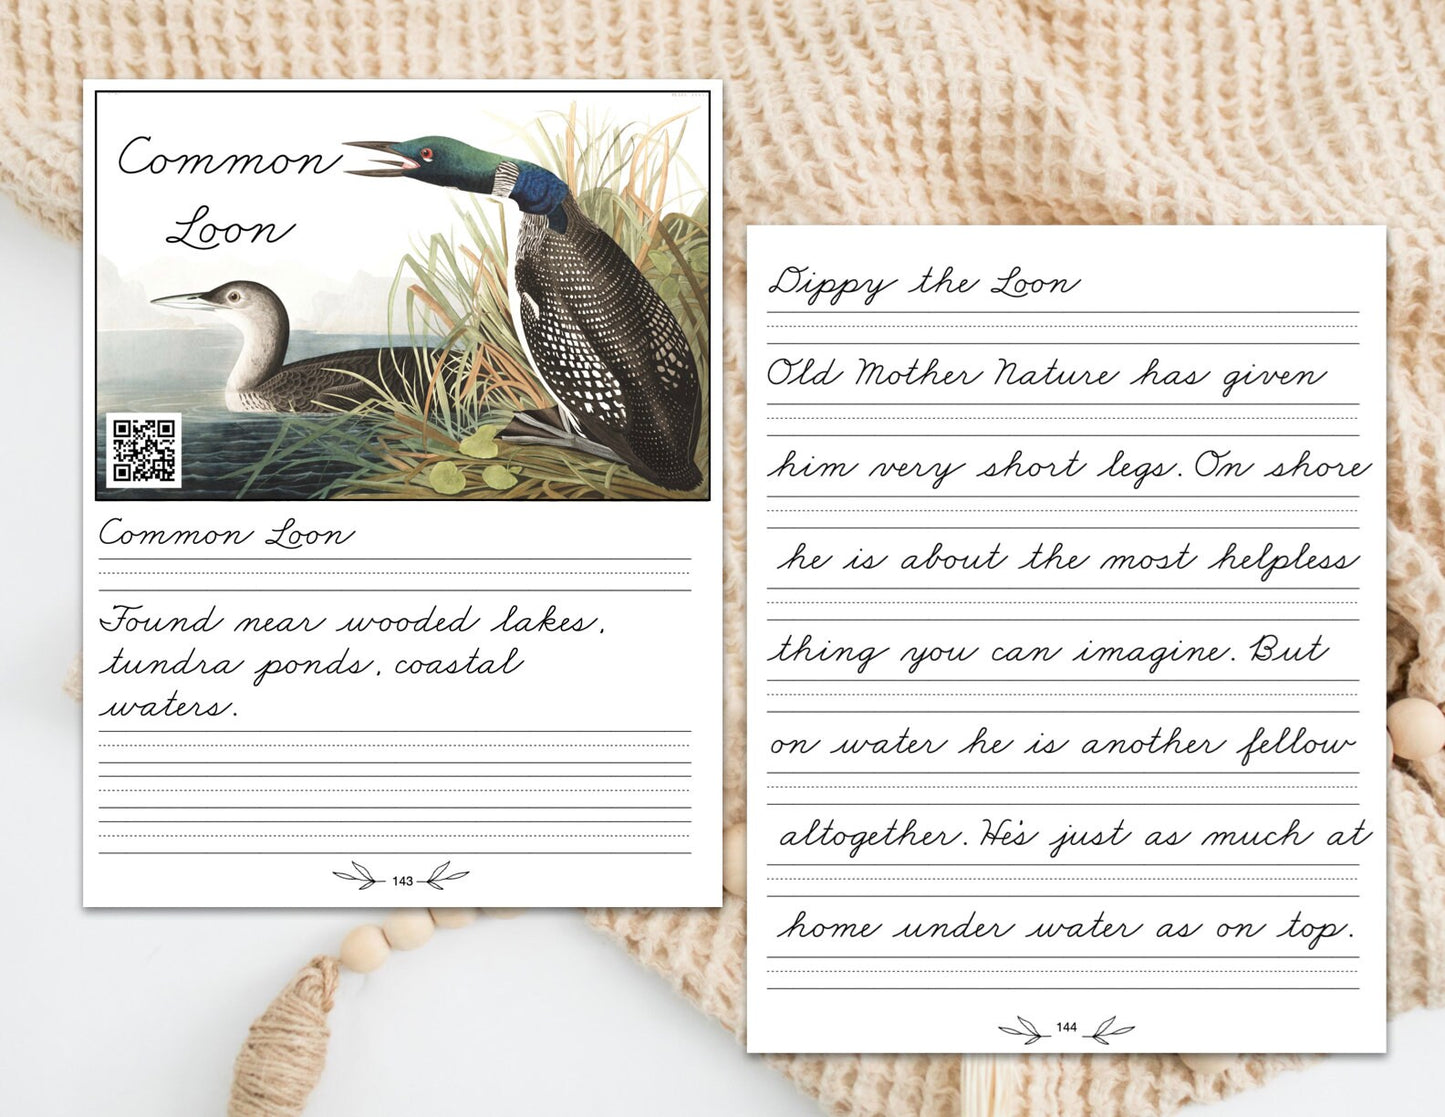 Common
Loon
Common Loon
Found near wooded lakes,
tundra ponds, coastal
waters.
143
Dippy the Loon
Old Mother Nature has given
him very short legs. On shore
he is about the most helpless
thing you can imagine. But
on water he is another fellow
altogether. He's just as much at
home under water as on top.
144